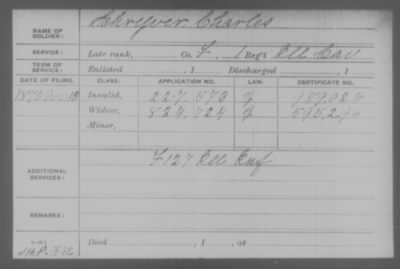 NAME OF SOLDIER: Schryver, Charles
SERVICE: Late rank, Co. F, 1 Reg't Ill Cav
TERM OF SERVICE: Enlisted , 1 Discharged , 1
DATE OF FILING. CLASS. APPLICATION NO. LAW. CERTIFICATE NO.
1876 Invalid,
Widow, 824.524 G
Minor,
ADDITIONAL SERVICES: F 127 Ill Inf
REMARKS:
Died , 1 , at